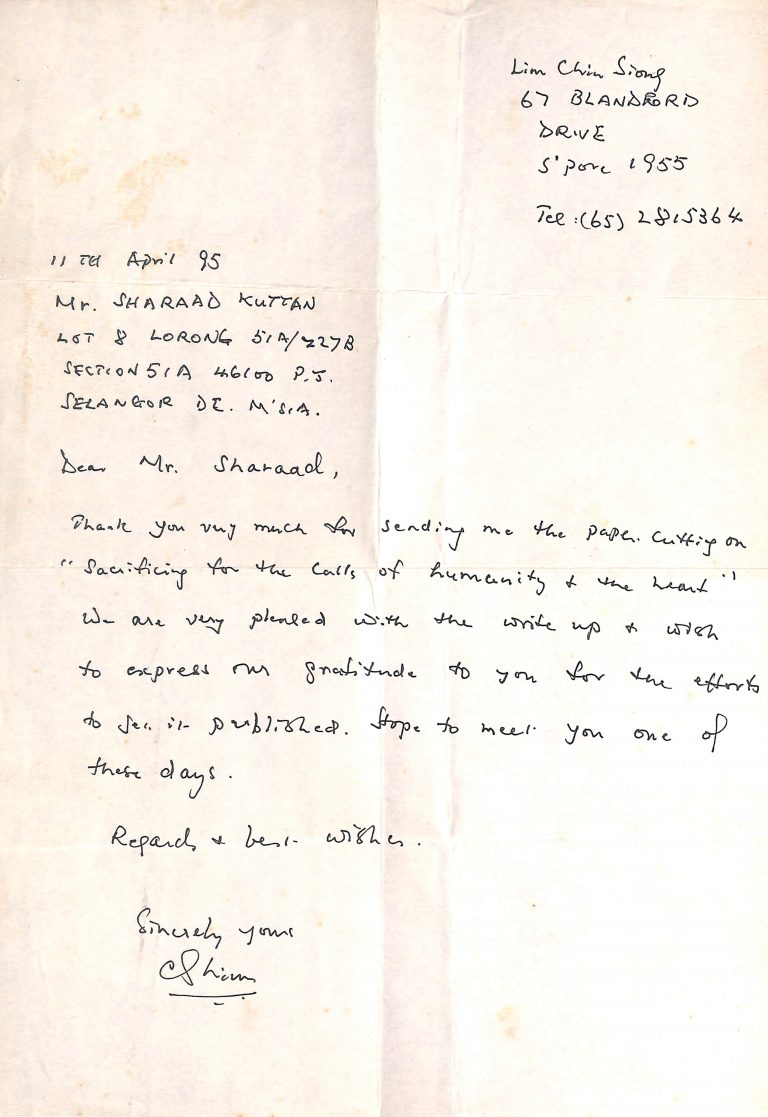 Lim Chin Siong
67 BLANDFORD
DRIVE
S'pore 1955
Tel: (65) 2815364
11TH April 95
Mr. SHARAAD KUTTAN
LOT 8 LORONG 51A/227B
SECTION 51A 46100 P.J.
SELANGOR DE. M'SIA.
Dear Mr. Sharaad,
Thank you very much for sending me the paper cutting on
"Sacrificing for the Calls of humanity & the heart"
We are very pleased with the write up & wish
to express our gratitude to you for the efforts
to get it published. Hope to meet you one of
these days.
Regards & best wishes.
Sincerely yours
CSLim